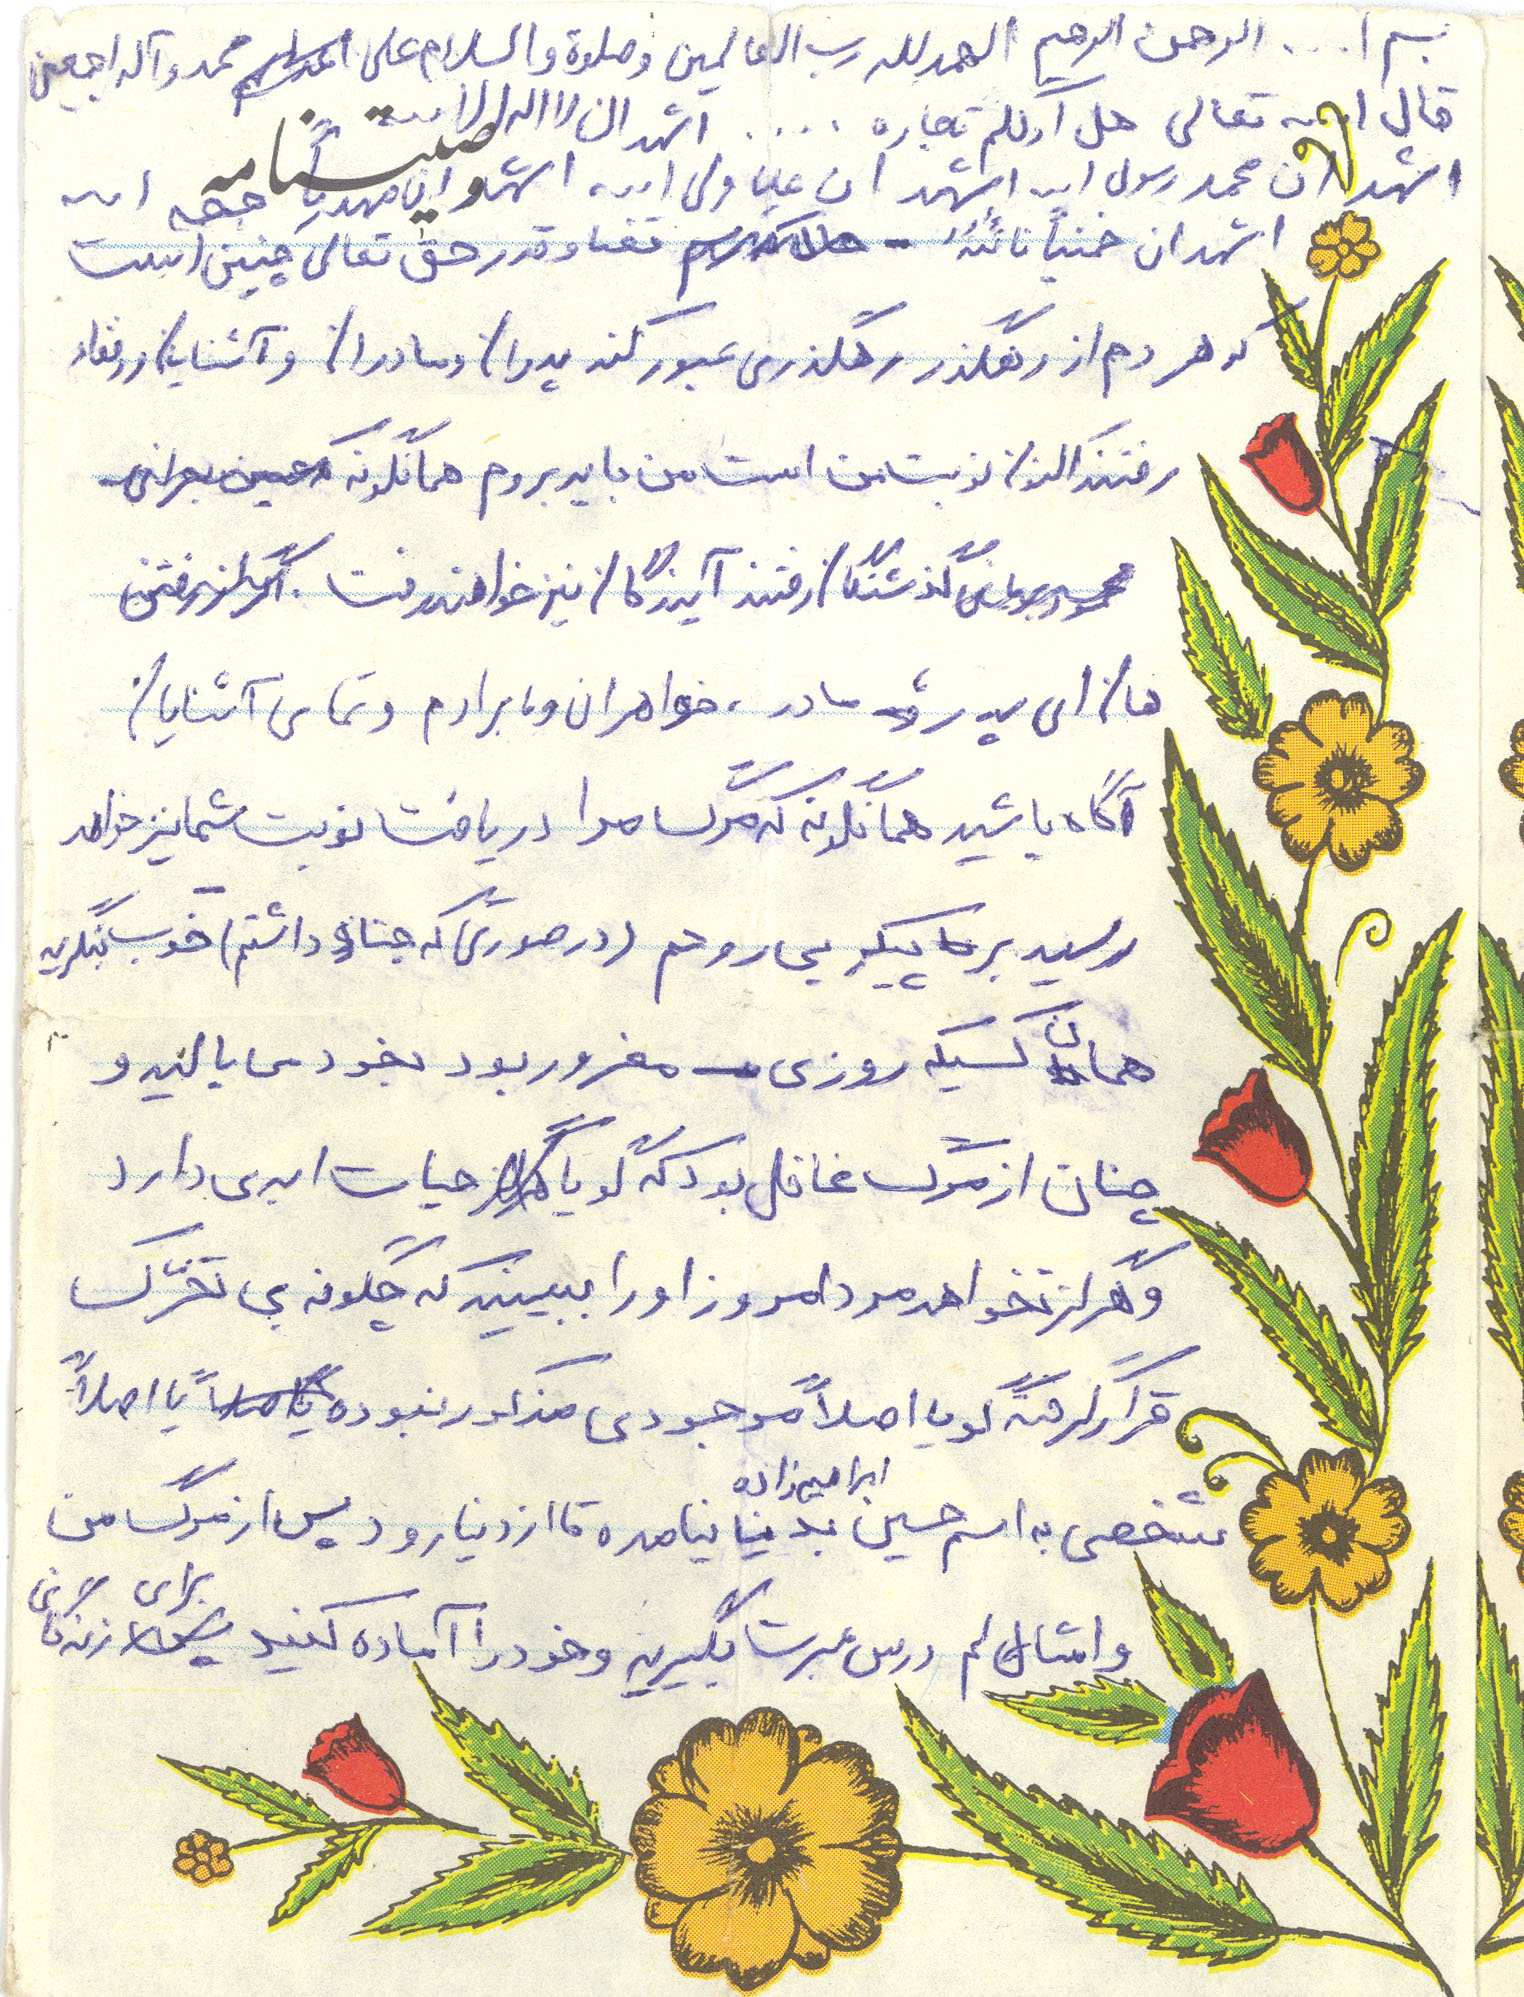 بسم ا... الرحمن الرحیم الحمدلله رب العالمین وصلوة والسلام علی محمد وآله اجمعین
قال ا... تعالی هل ادلکم تجاره ..... اشهد ان لا اله الا الله
وصیتنامه
اشهد ان محمد رسول الله اشهد ان علیا ولی الله اشهد ان مهدیا حجه الله
اشهد ان خمنیاً نائبه قضاء و قدر حق تعالی چنین است
که هر دم از رهگذر رهگذری عبور کند پدران و مادران و آشنایان و رفقاء
رفتند الان نوبت من است من باید بروم همانگونه که حسین بحرانی
گذشتگان رفتند آیندگان نیز خواهند رفت.
هان ای پدر و مادر، خواهران و برادرم و تمامی آشنایان
آگاه باشید همانگونه که مرگ مرا دریافت نوبت شما نیز خواهد
رسید بر پیکر بی روحم (در صورتی که جنازه داشتم) خوب بنگرید
همان کسیکه روزی مغرور بود بخود می بالید و
چنان از مرگ غافل بود که گویا حیات ابدی دارد
و هرگز نخواهد مرد امروز او را ببینید که چگونه بی تحرّک
قرار گرفته گویا اصلاً موجودی مذکور نبوده یا اصلاً
شخصی به اسم حسین ابراهیم زاده بدنیا نیامده تا از دنیا رود پس از مرگ من
و امثالم درس عبرت بگیرید و خود را آماده کنید برای زندگانی